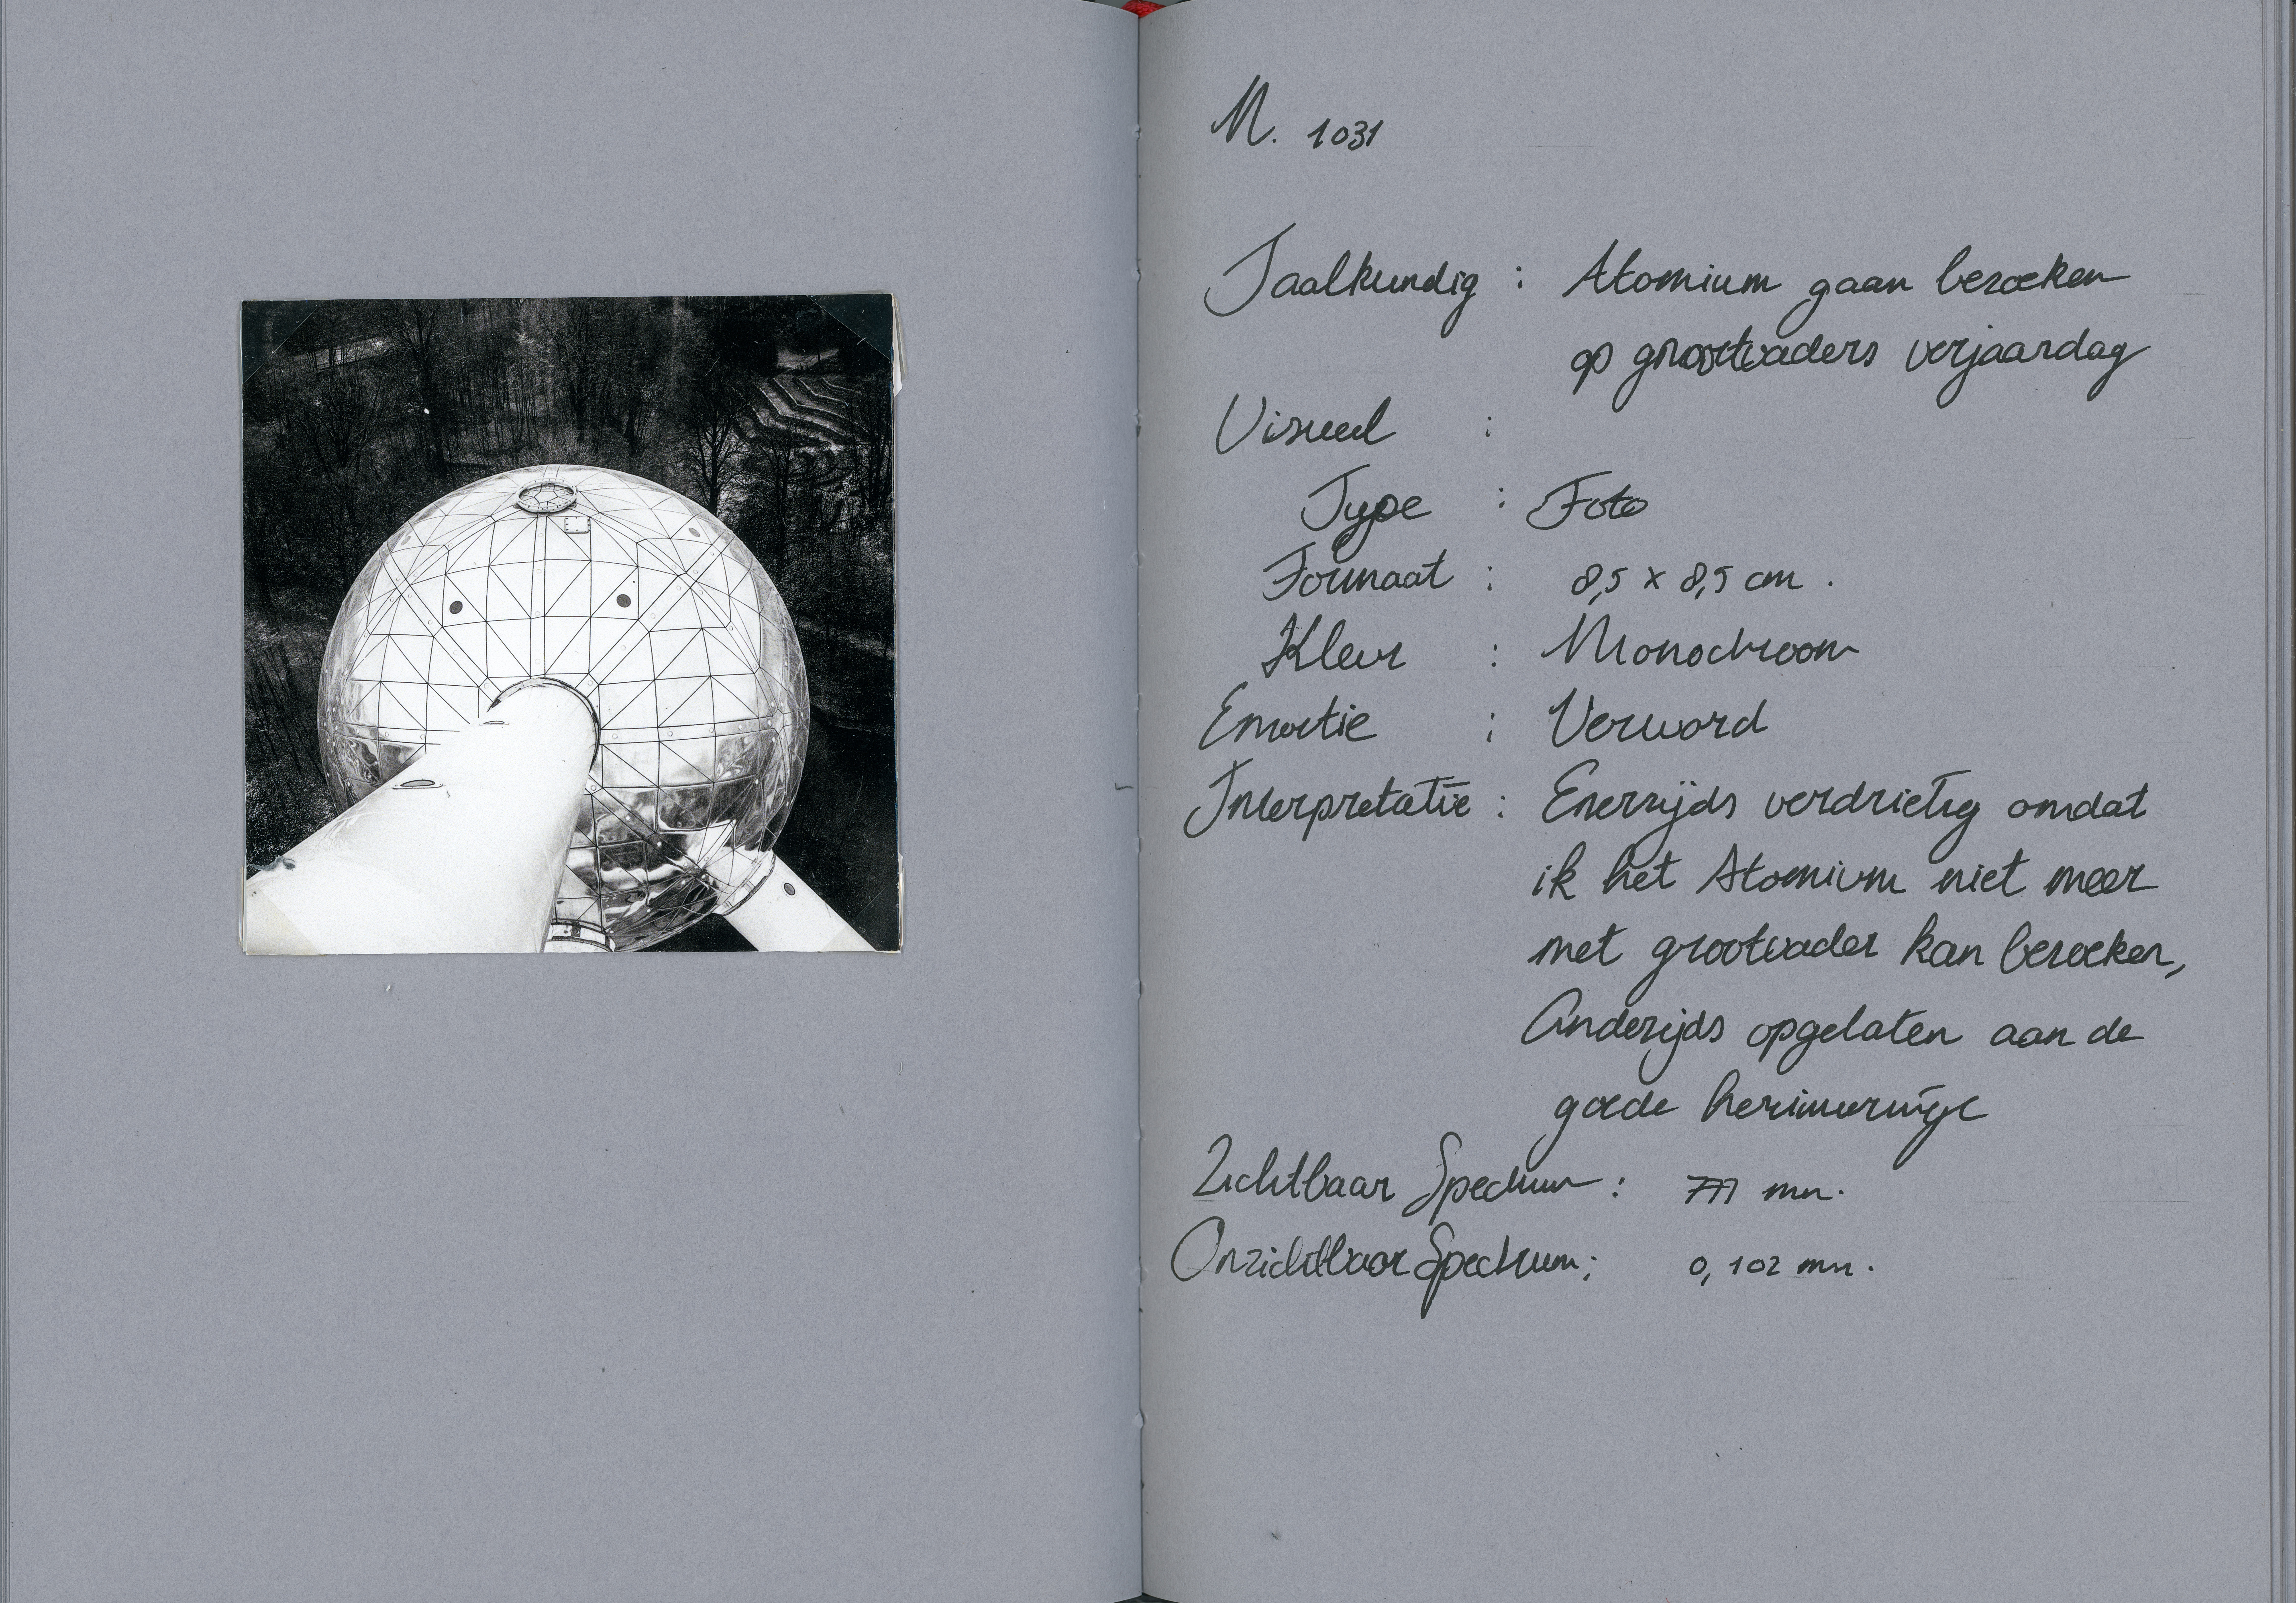 M. 1031
Taalkundig : Atomium gaan bezoeken
op grootvaders verjaardag
Visueel :
Type : Foto
Formaat : 8,5 x 8,5 cm.
Kleur : Monochroom
Emotie : Verward
Interpretatie : Enerzijds verdrietig omdat
ik het Atomium niet meer
met grootvader kan bezoeken,
Anderzijds opgelaten aan de
goede herinneringe
Zichtbaar Spectrum : 771 nm.
Onzichtbaar Spectrum : 0,102 nm.